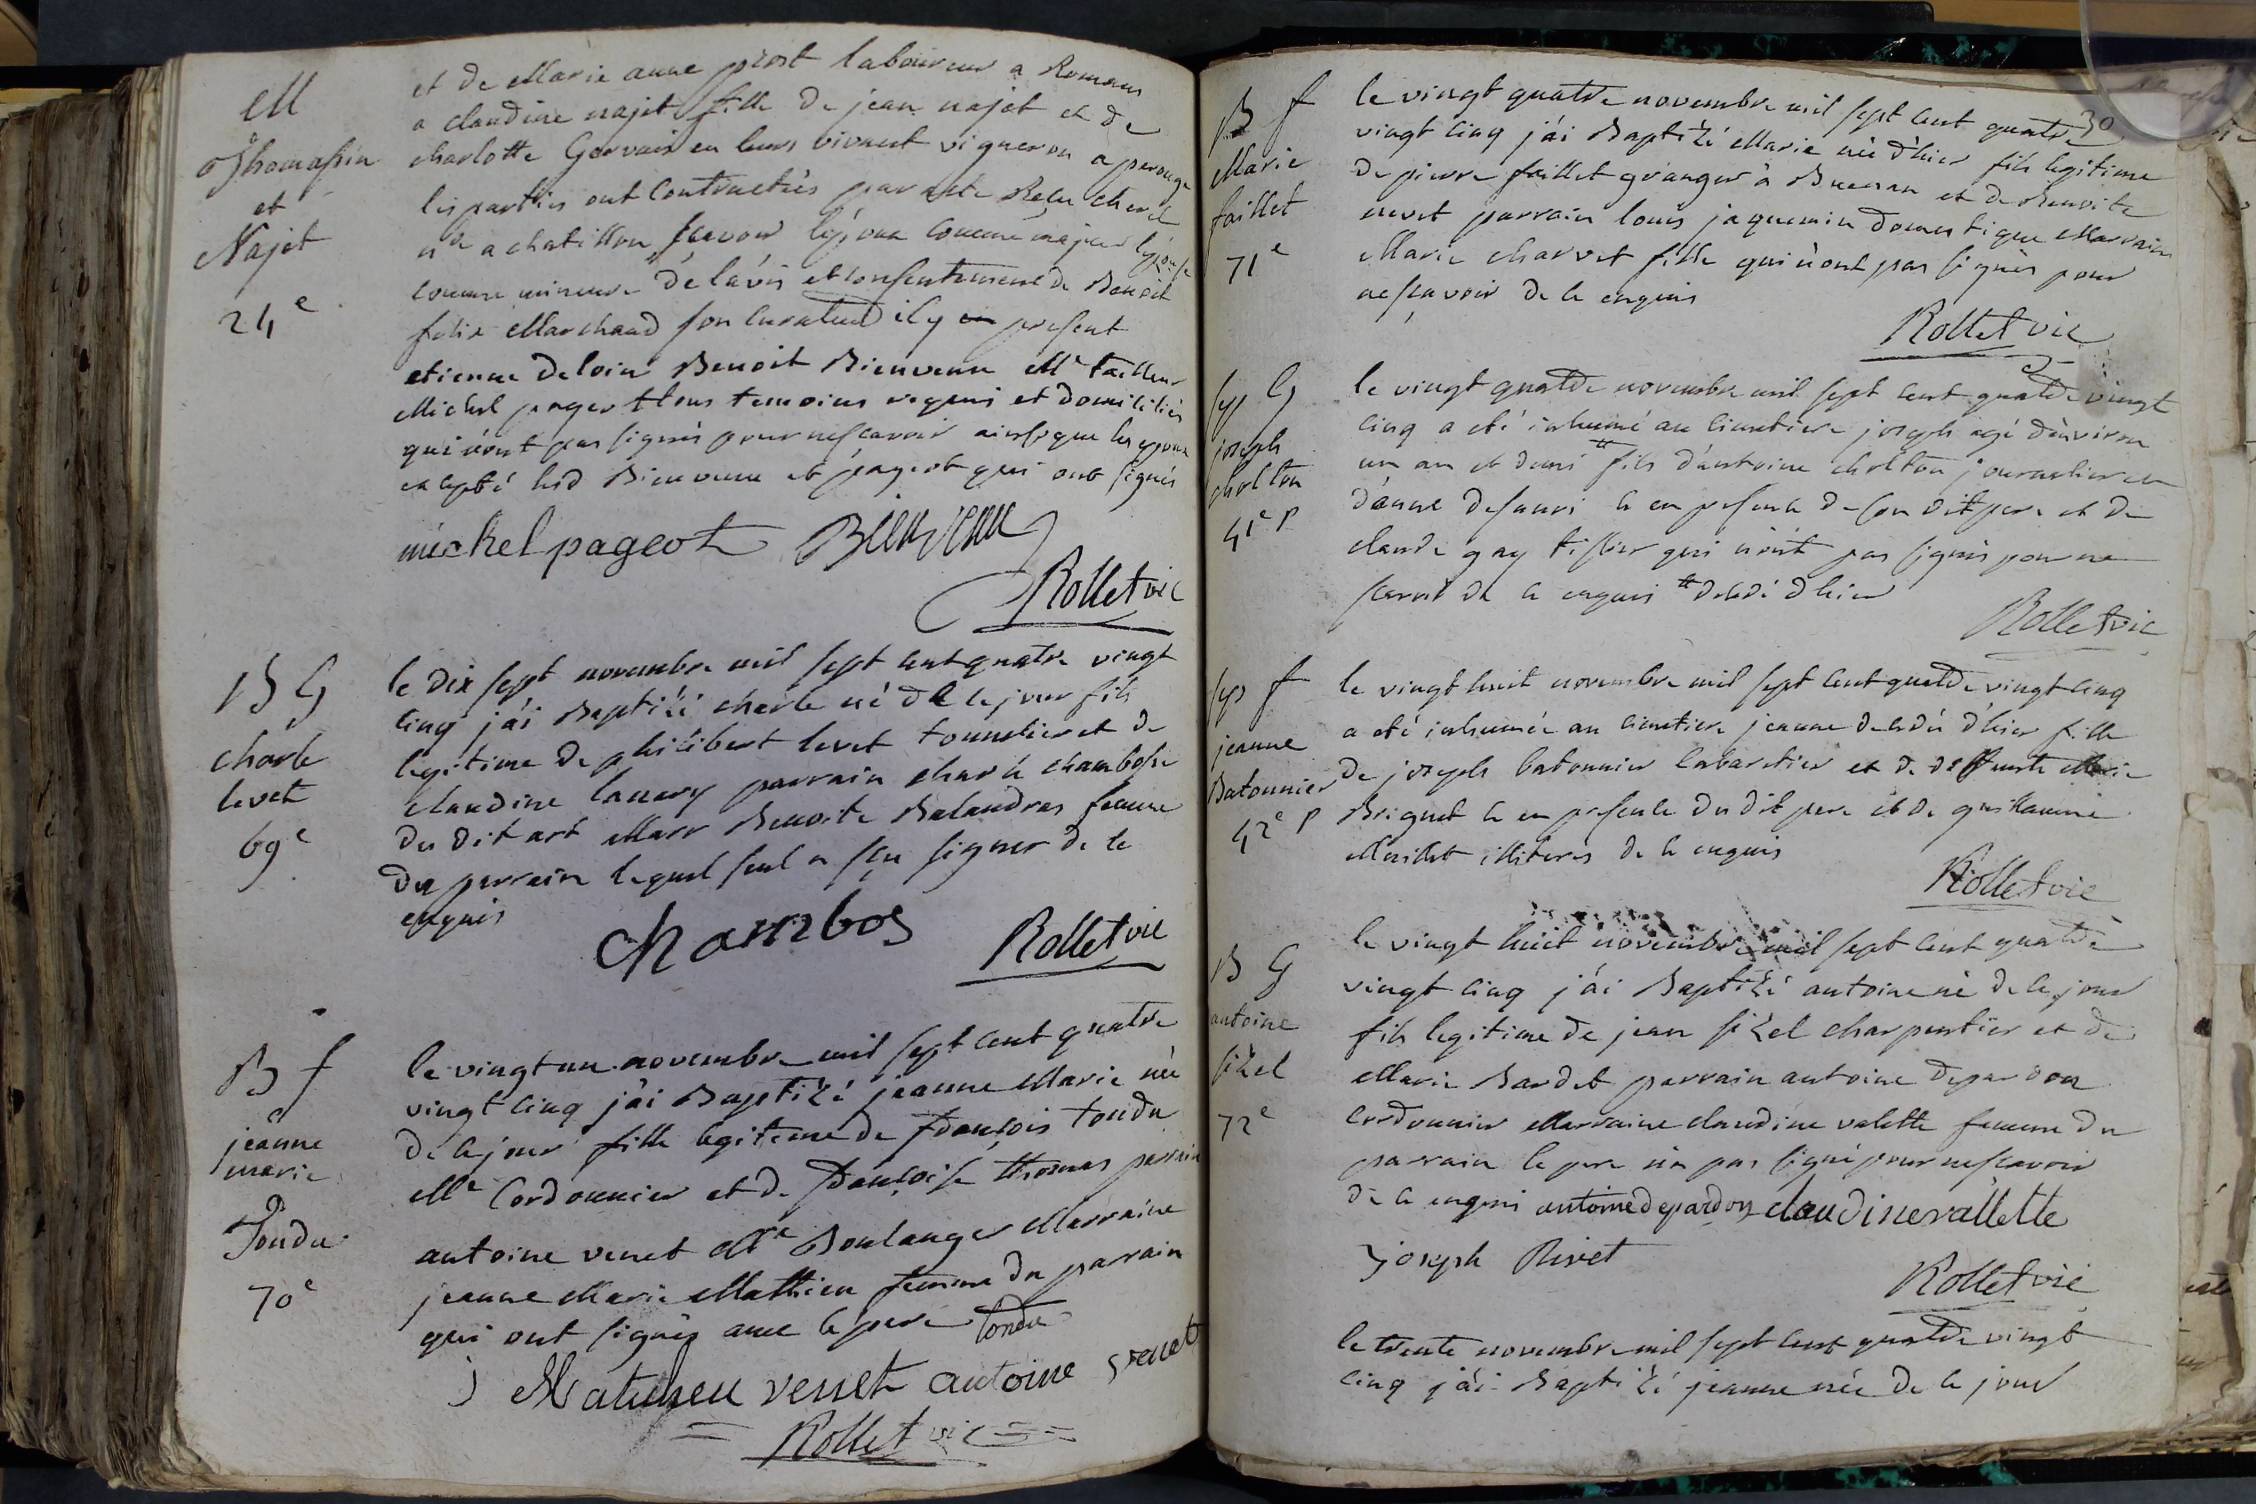 M
Thomassin
et
Najet
24e
et de Marie anne prost laboureur a Romans
a claudine najet fille de jean najet et de
charlotte Gervais en leurs vivant vigneron a perouge
les parties ont contractées par acte Reçu cheret
nre a chatillon sçavoir l'epoux comme majeur l'epouse
comme mineure de l'avis et consentement de Benoit
felix Marchand son curateur il y en present
etienne deloin Benoit Bienvenu Me tailleur
Michel pageot tous temoins requis et domiciliés
qui n'ont pas signés pour ne scavoir ainsi que les epoux
excepté lesd Bienvenu et pageot qui ont signés
michel pageot Bienvenu
Rollet vic
B G
charle
levet
69e
le dix sept novembre mil sept cent quatre vingt
cinq j'ai Baptizé charle né de ce jour fils
legitime de philibert levet tonnelier et de
claudine parrain charle chambosse
du dit art Marr Benoite Balandras femme
du parrain lequel seul a sçu signer de ce
enquis
chambos Rollet vic
B f
jeanne
marie
Tondu
70e
le vingt un novembre mil sept cent quatre
vingt cinq j'ai Baptizé jeanne Marie née
de ce jour fille legitime de françois tondu
Me Cordonnier et de françoise thomas parrain
antoine venet Me Boulanger Marraine
jeanne Marie Mathieu femme du parrain
qui ont signés avec le pere tondu
j Matuheu venet antoine venet
Rollet vic
30
B f
Marie
faillet
71e
le vingt quatre novembre mil sept cent quatre
vingt cinq j'ai Baptizé Marie née d'hier fils legitime
de pierre faillet granger à et de Benoite
nevet parrain louis jaquemin domestique Marraine
Marie charvet fille qui n'ont pas signés pour
ne sçavoir de ce enquis
Rollet vic
sep G
joseph
cholton
41e p
le vingt quatre novembre mil sept cent quatre vingt
cinq a eté inhumé au cimetiere joseph agé d'environ
un an et demi # fils d'antoine cholton journalier et
d'anne ce en presence de son dit pere et de
claude gay tissier qui n'ont pas signés pour ne
scavoir de ce enquis # decedé d'hier
Rollet vic
sep f
jeanne
Batonnier
42e p
le vingt huit novembre mil sept cent quatre vingt cinq
a eté inhumée au cimetiere jeanne decedée d'hier fille
de joseph batonnier cabaretier et de deffunte Marie
Briguet ce en presence du dit pere et de guillaume
Maillet illiteres de ce enquis
Rollet vic
B G
antoine
sizel
72e
le vingt huit novembre mil sept cent quatre
vingt cinq j'ai Baptizé antoine né de ce jour
fils legitime de jean sizel charpentier et de
Marie Bardet parrain antoine depardon
cordonnier Marraine claudine valette femme du
parrain le pere n'a pas signé pour ne scavoir
de ce enquis antoine depardon claudine vallette
joseph Rivet
Rollet vic
le trente novembre mil sept cent quatre vingt
cinq j'ai Baptizé jeanne née de ce jour